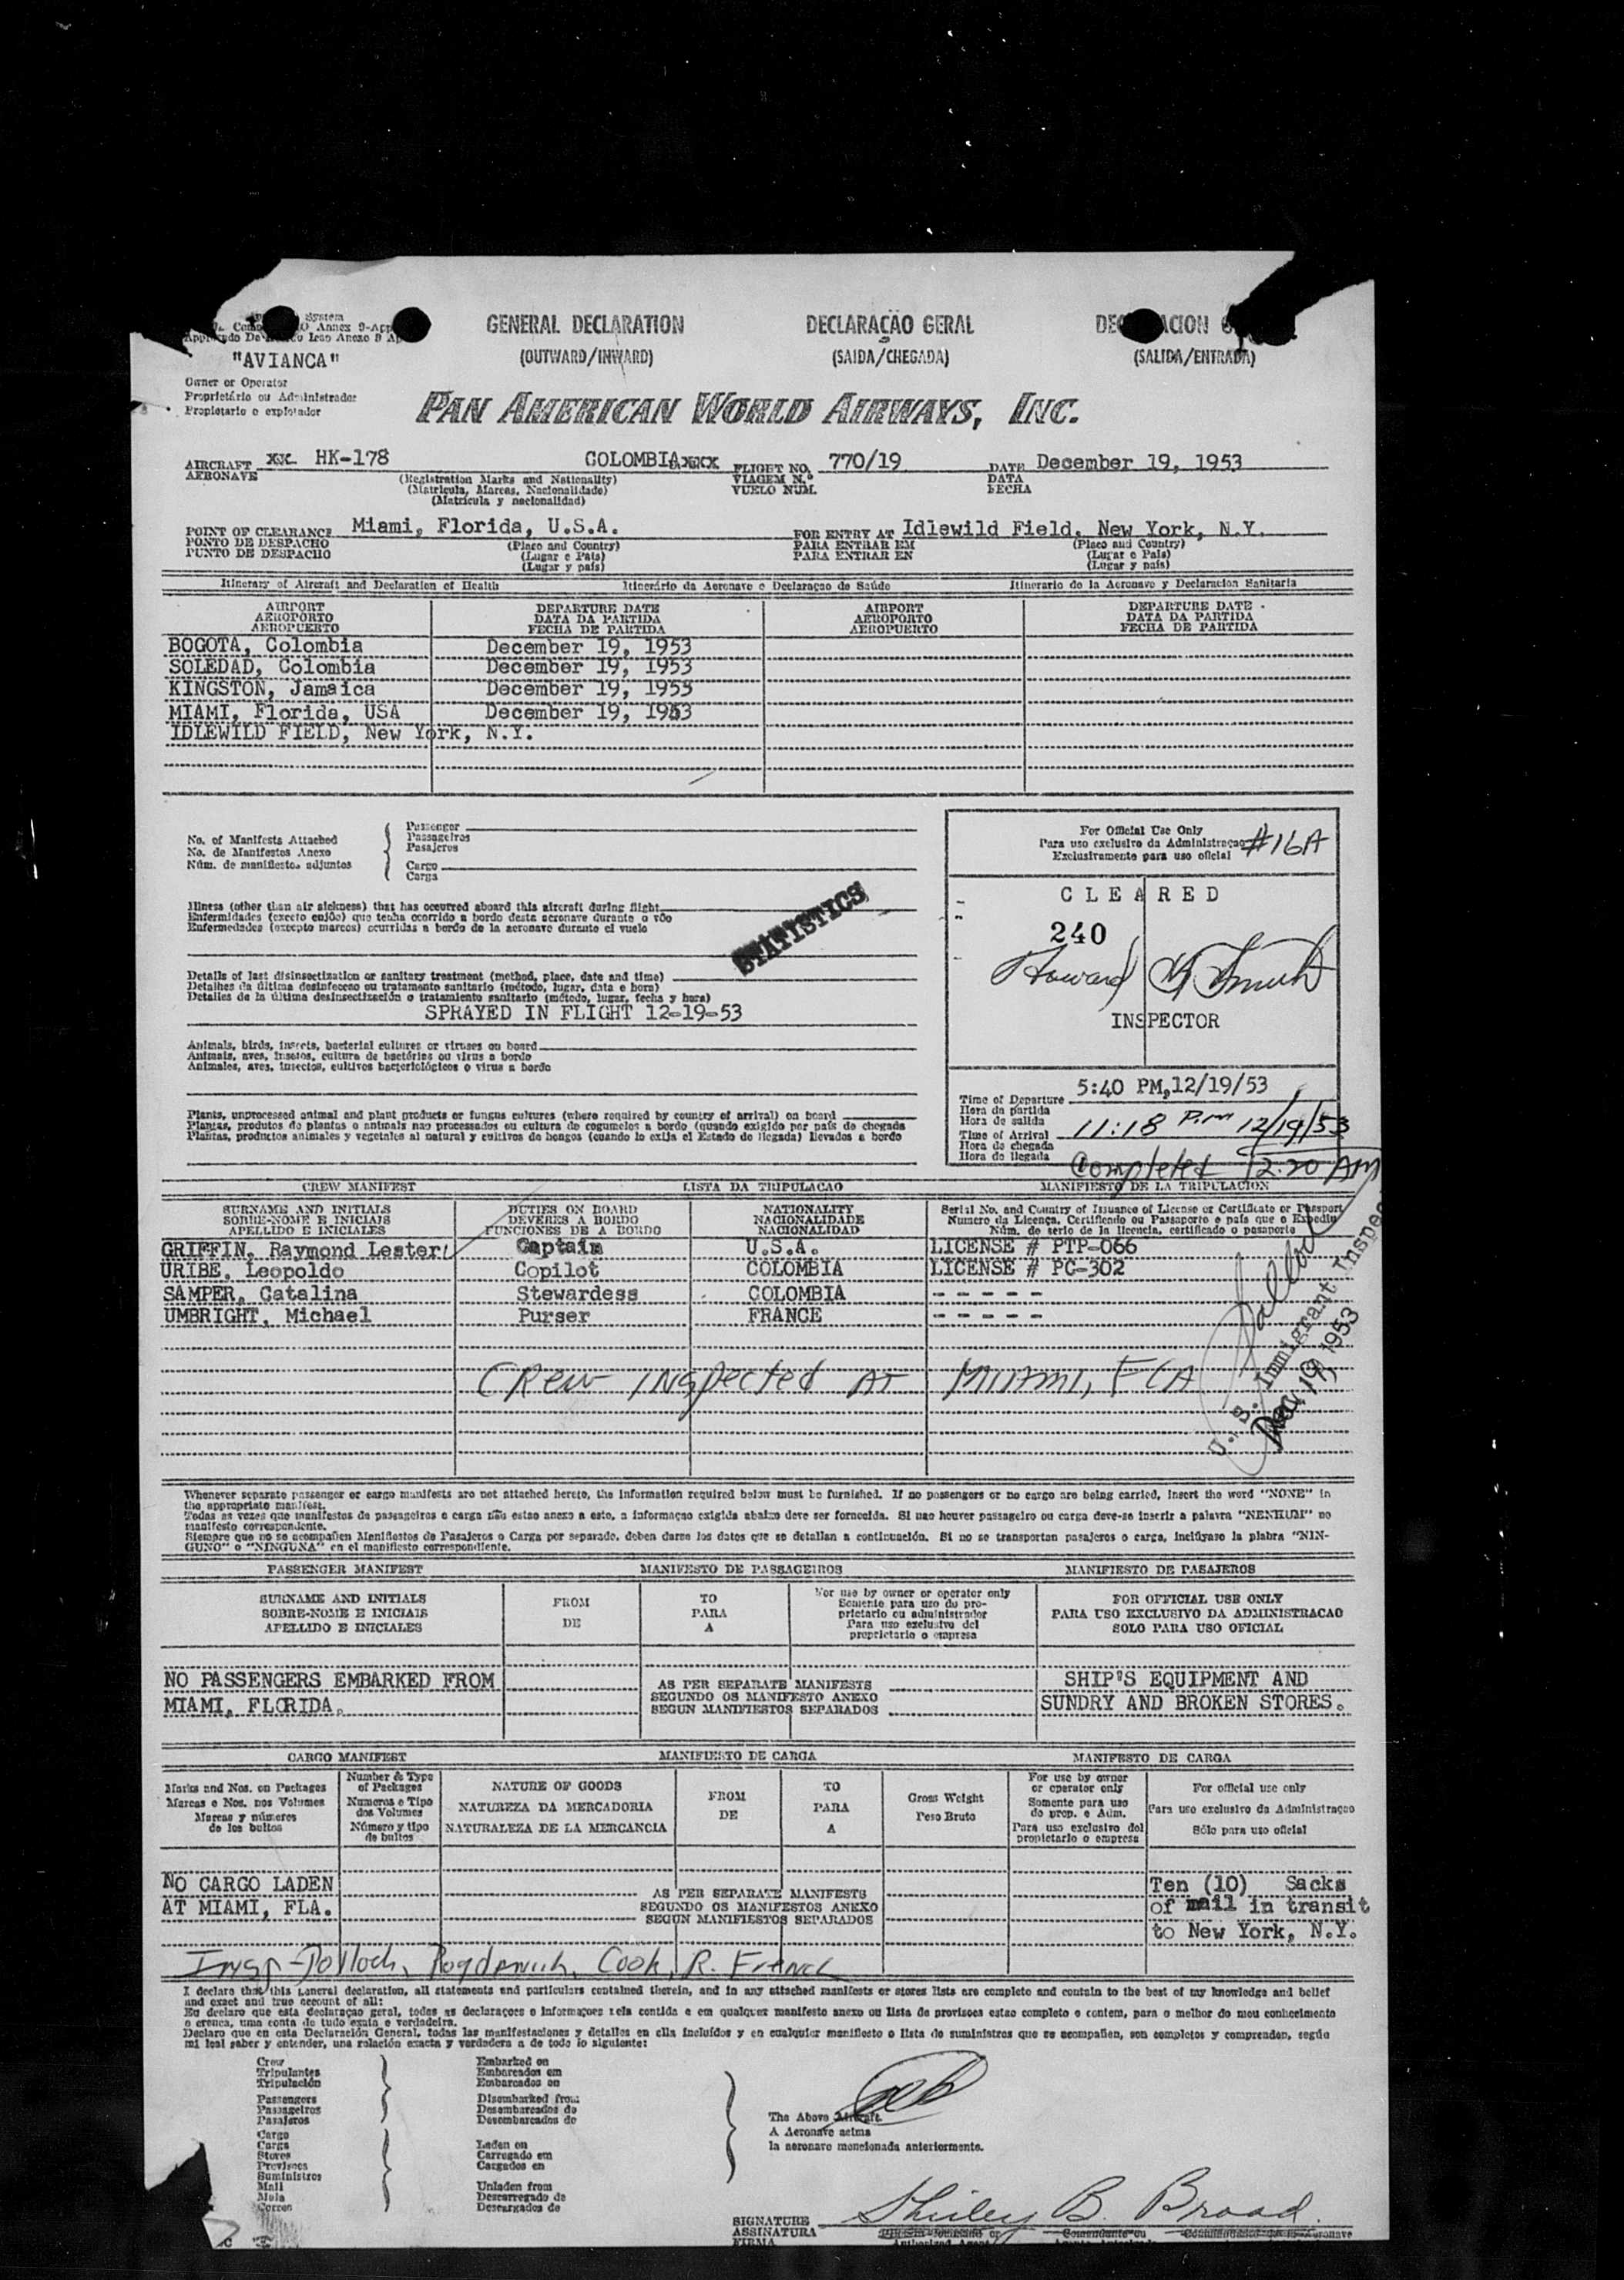 System
Annex 9-App
"AVIANCA"
Owner or Operator
Proprietário ou Administrador
Propietario o explotador
GENERAL DECLARATION
(OUTWARD/INWARD)
DECLARAÇÃO GERAL
(SAIDA/CHEGADA)
(SALIDA/ENTRADA)
PAN AMERICAN WORLD AIRWAYS, INC.
AIRCRAFT xx HK-178 COLOMBIAxxx FLIGHT NO. 770/19 DATE December 19, 1953
AERONAVE (Registration Marks and Nationality) VIAGEM N.º DATA
(Matricula, Marcas, Nacionalidade) VUELO NUM. FECHA
(Matrícula y nacionalidad)
POINT OF CLEARANCE Miami, Florida, U.S.A. FOR ENTRY AT Idlewild Field, New York, N.Y.
PONTO DE DESPACHO (Place and Country) PARA ENTRAR EM (Place and Country)
PUNTO DE DESPACHO (Lugar e País) PARA ENTRAR EN (Lugar e País)
(Lugar y país) (Lugar y país)
Itinerary of Aircraft and Declaration of Health Itinerário da Aeronave e Declaraçao de Saúde Itinerario de la Aeronave y Declaracion Sanitaria
AIRPORT DEPARTURE DATE AIRPORT DEPARTURE DATE
AEROPORTO DATA DA PARTIDA AEROPORTO DATA DA PARTIDA
AEROPUERTO FECHA DE PARTIDA AEROPUERTO FECHA DE PARTIDA
BOGOTA, Colombia December 19, 1953
SOLEDAD, Colombia December 19, 1953
KINGSTON, Jamaica December 19, 1953
MIAMI, Florida, USA December 19, 1953
IDLEWILD FIELD, New York, N.Y.
No. of Manifests Attached
No. de Manifestos Anexo
Núm. de manifiestos adjuntos
Passenger
Passageiros
Pasajeros
Cargo
Carga
For Official Use Only
Para uso exclusivo da Administraçao #16A
Exclusivamente para uso oficial
CLEARED
240
Howard Smith
INSPECTOR
Illness (other than air sickness) that has occurred aboard this aircraft during flight
Enfermidades (exceto enjôo) que tenha ocorrido a bordo desta aeronave durante o vôo
Enfermedades (excepto mareos) ocurridas a bordo de la aeronave durante el vuelo
STATISTICS
Details of last disinsectization or sanitary treatment (method, place, date and time)
Detalhes da última desinfeccao ou tratamento sanitario (método, lugar, data e hora)
Detalles de la última desinsectización o tratamiento sanitario (método, lugar, fecha y hora)
SPRAYED IN FLIGHT 12-19-53
Animals, birds, insects, bacterial cultures or viruses on board
Animais, aves, insetos, cultura de bactérias ou virus a bordo
Animales, aves, insectos, cultivos bacteriológicos o virus a bordo
Plants, unprocessed animal and plant products or fungus cultures (where required by country of arrival) on board
Plantas, produtos de plantas o animais nao processados ou cultura de cogumelos a bordo (quando exigido por país de chegada
Plantas, productos animales y vegetales al natural y cultivos de hongos (cuando lo exija el Estado de llegada) llevados a bordo
5:40 PM,12/19/53
Time of Departure
Hora da partida
Hora de salida
Time of Arrival 11:18 P.m 12/19/53
Hora de chegada
Hora de llegada
Completed 12:20 AM
CREW MANIFEST LISTA DA TRIPULACAO MANIFIESTO DE LA TRIPULACION
SURNAME AND INITIALS DUTIES ON BOARD NATIONALITY Serial No. and Country of Issuance of License or Certificate or Passport
SOBRE-NOME E INICIAIS DEVERES A BORDO NACIONALIDADE Numero da Licença, Certificado ou Passaporto e país que o Expediu
APELLIDO E INICIALES FUNCIONES DE A BORDO NACIONALIDAD Núm. de serio de la licencia, certificado o pasaporte
GRIFFIN, Raymond Lester Captain U.S.A. LICENSE # PTP-066
URIBE, Leopoldo Copilot COLOMBIA LICENSE # PC-302
SAMPER, Catalina Stewardess COLOMBIA - - - - -
UMBRIGHT, Michael Purser FRANCE - - - - -
Crew inspected AT MIAMI, FLA
U.S. Immigrant Inspec
Dec. 19, 1953
Whenever separate passenger or cargo manifests are not attached hereto, the information required below must be furnished. If no passengers or no cargo are being carried, insert the word "NONE" in
the appropriate manifest.
Todas as vezes que manifestos de passageiros e carga não estao anexo a esto, a informaçao exigida abaixo deve ser fornecida. Si nao houver passageiro ou carga deve-se inserir a palavra "NENHUM" no
manifesto correspondente.
Siempre que no se acompañen Manifiestos de Pasajeros o Carga por separado, deben darse los datos que se detallan a continuación. Si no se transportan pasajeros o carga, inclúyase la plabra "NIN-
GUNO" o "NINGUNA" en el manifiesto correspondiente.
PASSENGER MANIFEST MANIFESTO DE PASSAGEIROS MANIFIESTO DE PASAJEROS
SURNAME AND INITIALS
SOBRE-NOME E INICIAIS
APELLIDO E INICIALES
FROM
DE
TO
PARA
A
For use by owner or operator only
Somente para uso do pro-
prietario ou administrador
Para uso exclusivo del
proprietario o empresa
FOR OFFICIAL USE ONLY
PARA USO EXCLUSIVO DA ADMINISTRACAO
SOLO PARA USO OFICIAL
NO PASSENGERS EMBARKED FROM
MIAMI, FLORIDA.
AS PER SEPARATE MANIFESTS
SEGUNDO OS MANIFESTO ANEXO
SEGUN MANIFIESTOS SEPARADOS
SHIP'S EQUIPMENT AND
SUNDRY AND BROKEN STORES.
CARGO MANIFEST MANIFIESTO DE CARGA MANIFESTO DE CARGA
Marks and Nos. on Packages
Marcas e Nos. nos Volumes
Marcas y números
de los bultos
Number & Type
of Packages
Numeros e Tipo
dos Volumes
Número y tipo
de bultos
NATURE OF GOODS
NATUREZA DA MERCADORIA
NATURALEZA DE LA MERCANCIA
FROM
DE
TO
PARA
A
Gross Weight
Peso Bruto
For use by owner
or operator only
Somente para uso
do prop. e Adm.
Para uso exclusivo del
propietario o empresa
For official use only
Para uso exclusivo da Administraçao
Sólo para uso oficial
NO CARGO LADEN
AT MIAMI, FLA.
AS PER SEPARATE MANIFESTS
SEGUNDO OS MANIFESTOS ANEXO
SEGUN MANIFIESTOS SEPARADOS
Ten (10) Sacks
of mail in transit
to New York, N.Y.
Insp- Cook, R. Franck
I declare that this General declaration, all statements and particulars contained therein, and in any attached manifests or stores lists are complete and contain to the best of my knowledge and belief
and exact and true account of all:
Eu declaro que esta declaraçao geral, todas as declaraçoes e informaçoes nela contida e em qualquer manifesto anexo ou lista de provisoes estao completo e contem, para o melhor do meu conhecimento
e crenca, uma conta de tudo exata e verdadeira.
Declaro que en esta Declaración General, todas las manifestaciones y detalles en ella incluídos y en cualquier manifiesto o lista de suministros que se acompañen, son completos y comprenden, según
mi leal saber y entender, una relación exacta y verdadera a de todo lo siguiente:
Crew
Tripulantes
Tripulación
Passengers
Passageiros
Pasajeros
Cargo
Carga
Stores
Provisoes
Suministros
Mail
Mala
Correo
Embarked on
Embarcados em
Embarcados en
Disembarked from
Desembarcados de
Desembarcados de
Laden on
Carregado em
Cargados en
Unladen from
Descarregado de
Descargados de
The Above Aircraft.
A Aeronave acima
la aeronave mencionada anteriormente.
SIGNATURE Shirley B. Broad
ASSINATURA
FIRMA